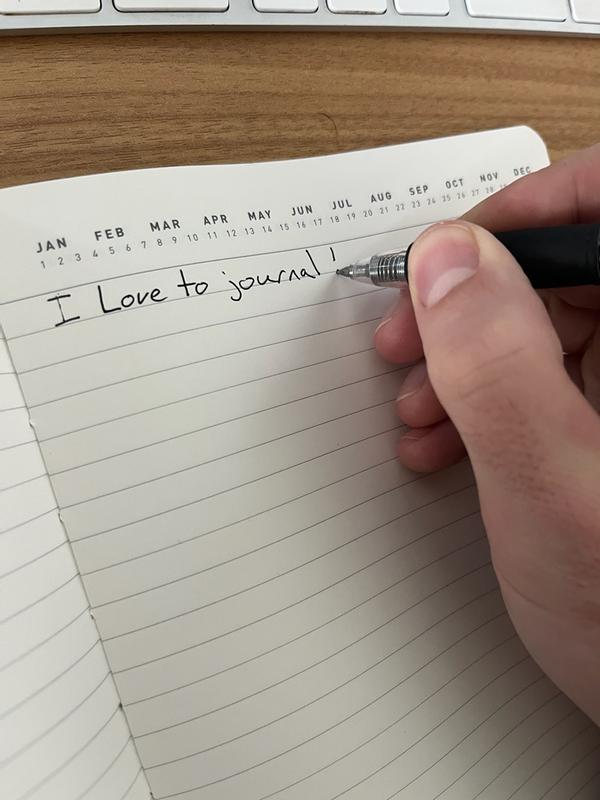 JAN FEB MAR APR MAY JUN JUL AUG SEP OCT NOV DEC
1 2 3 4 5 6 7 8 9 10 11 12 13 14 15 16 17 18 19 20 21 22 23 24 25 26 27 28
I Love to journal!